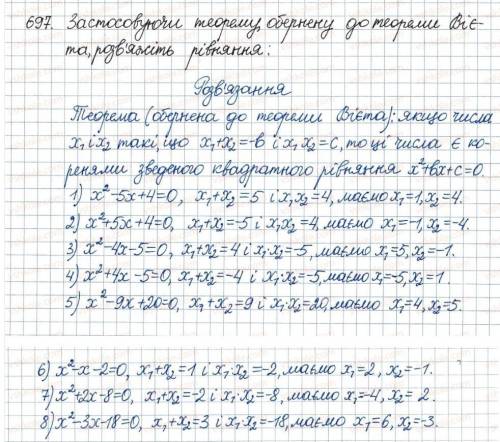 697. Застосовуючи теорему, обернену до теореми Віє-
та, розв'яжіть рівняння:
Розв'язання
Теорема (обернена до теореми Вієта): якщо числа
x₁ і x₂ такі, що x₁+x₂=-b і x₁x₂=c, то ці числа є ко-
ренями зведеного квадратного рівняння x²+bx+c=0.
1) x²-5x+4=0, x₁+x₂=5 і x₁x₂=4, маємо x₁=1, x₂=4.
2) x²+5x+4=0, x₁+x₂=-5 і x₁x₂=4, маємо x₁=-1, x₂=-4.
3) x²-4x-5=0, x₁+x₂=4 і x₁·x₂=-5, маємо x₁=5, x₂=-1.
4) x²+4x-5=0, x₁+x₂=-4 і x₁x₂=-5, маємо x₁=-5, x₂=1.
5) x²-9x+20=0, x₁+x₂=9 і x₁·x₂=20, маємо x₁=4, x₂=5.
6) x²-x-2=0, x₁+x₂=1 і x₁·x₂=-2, маємо x₁=2, x₂=-1.
7) x²+2x-8=0, x₁+x₂=-2 і x₁·x₂=-8, маємо x₁=-4, x₂=2.
8) x²-3x-18=0, x₁+x₂=3 і x₁·x₂=-18, маємо x₁=6, x₂=-3.